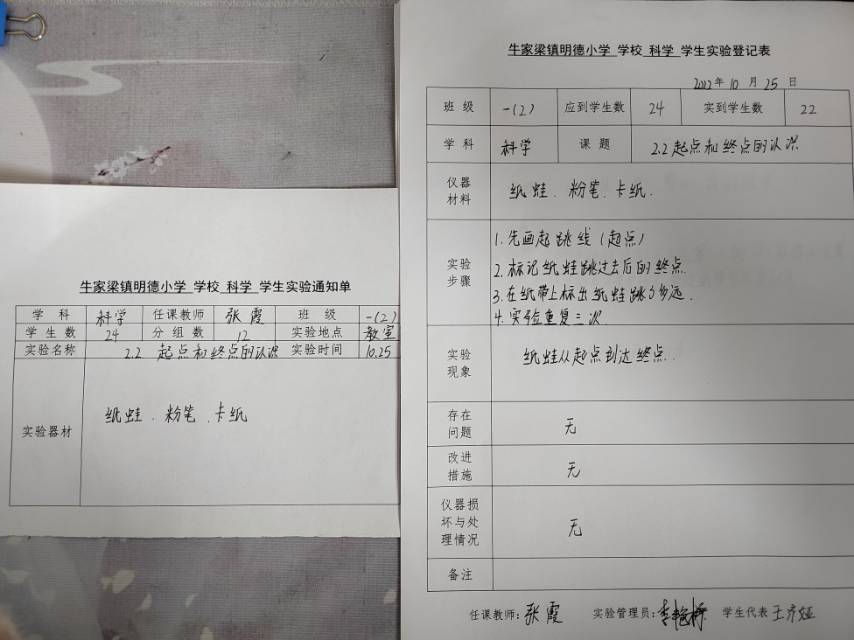 牛家梁镇明德小学 学校 科学 学生实验通知单
学科 科学 任课教师 张霞 班级 一(2)
学生数 24 分组数 12 实验地点 教室
实验名称 2.2 起点和终点的认识 实验时间 10.25
实验器材 纸蛙、粉笔、卡纸
牛家梁镇明德小学 学校 科学 学生实验登记表
2022年10月25日
班级 一(2) 应到学生数 24 实到学生数 22
学科 科学 课题 2.2起点和终点的认识
仪器
材料
纸蛙、粉笔、卡纸.
实验
步骤
1.先画起跳线(起点)
2.标记纸蛙跳过去后的终点.
3.在纸带上标出纸蛙跳了多远.
4.实验重复三次
实验
现象
纸蛙从起点到达终点.
存在
问题
无
改进
措施
无
仪器损
坏与处
理情况
无
备注
任课教师:张霞 实验管理员: 学生代表